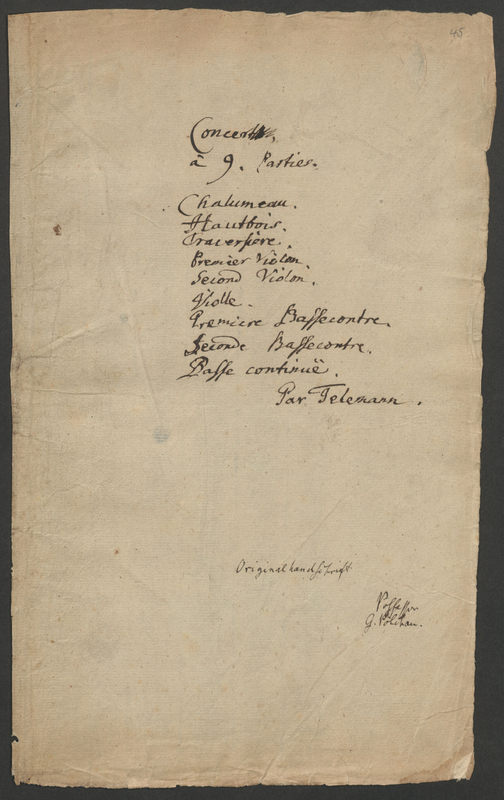 45
Concert,
à 9. Parties.
Chalumeau.
Hautbois.
Traversiere.
Premier Violon.
Second Violon.
Violle.
Premiere Bassecontre.
Seconde Bassecontre.
Basse continuë.
Par Telemann.
Originalhandschrift.
G. Pölchau.